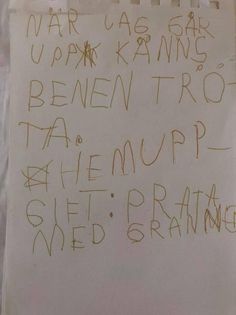 NÄR JAG GÅR
UPP KÄNNS
BENEN TRÖ-
TTA.
HEMUPP-
GIFT: PRATA
MED GRANNE